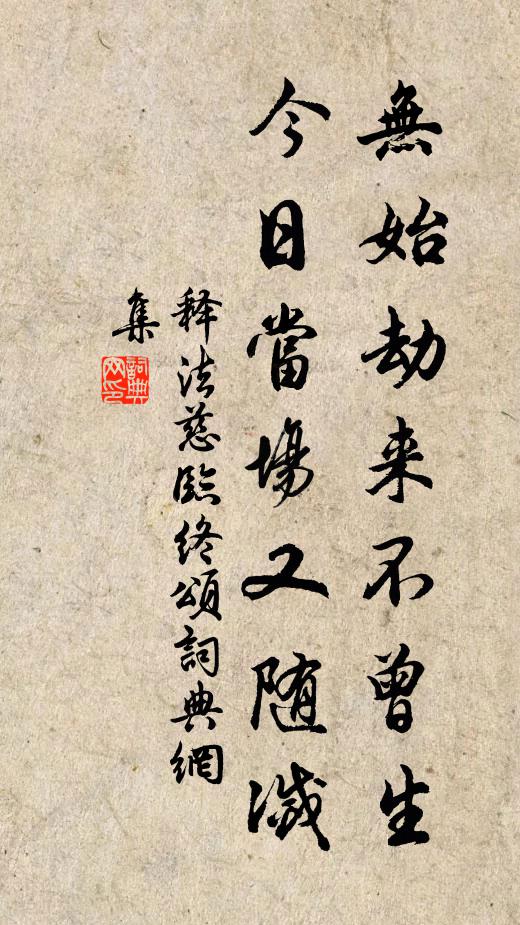 無始劫来不曾生
今日當場又随滅
释法慈臨终頌詞典網
集
詞典网印